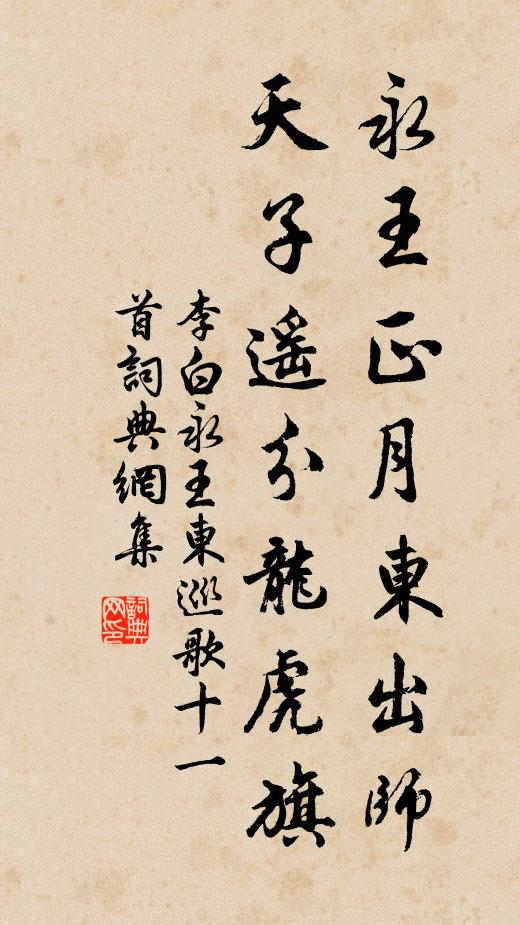 永王正月東出師
天子遥分龍虎旗
李白永王東巡歌十一
首詞典網集
詞典网印